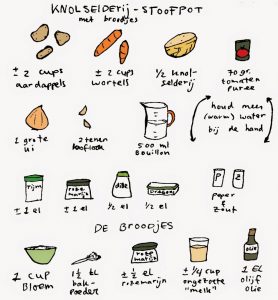 KNOLSELDERIJ-STOOFPOT
met broodjes
± 2 cups
aardappels
± 2 cups
wortels
1/2 knol-
selderij
70 gr.
tomaten
puree
1 grote
ui
2 tenen
knoflook
500 ml
Bouillon
houd meer
(warm) water
bij de hand
tijm
± 1 el
roze-
marijn
± 1 el
dille
1/2 el
1/2 el
P
Z
peper
& zout
DE BROODJES
1 cup
bloem
1 1/2 tl
bak-
poeder
roze-
marijn
± 1/2 el
rozemarijn
± 1/4 cup
ongezoete
"melk"
olie
1 El
olijf
olie